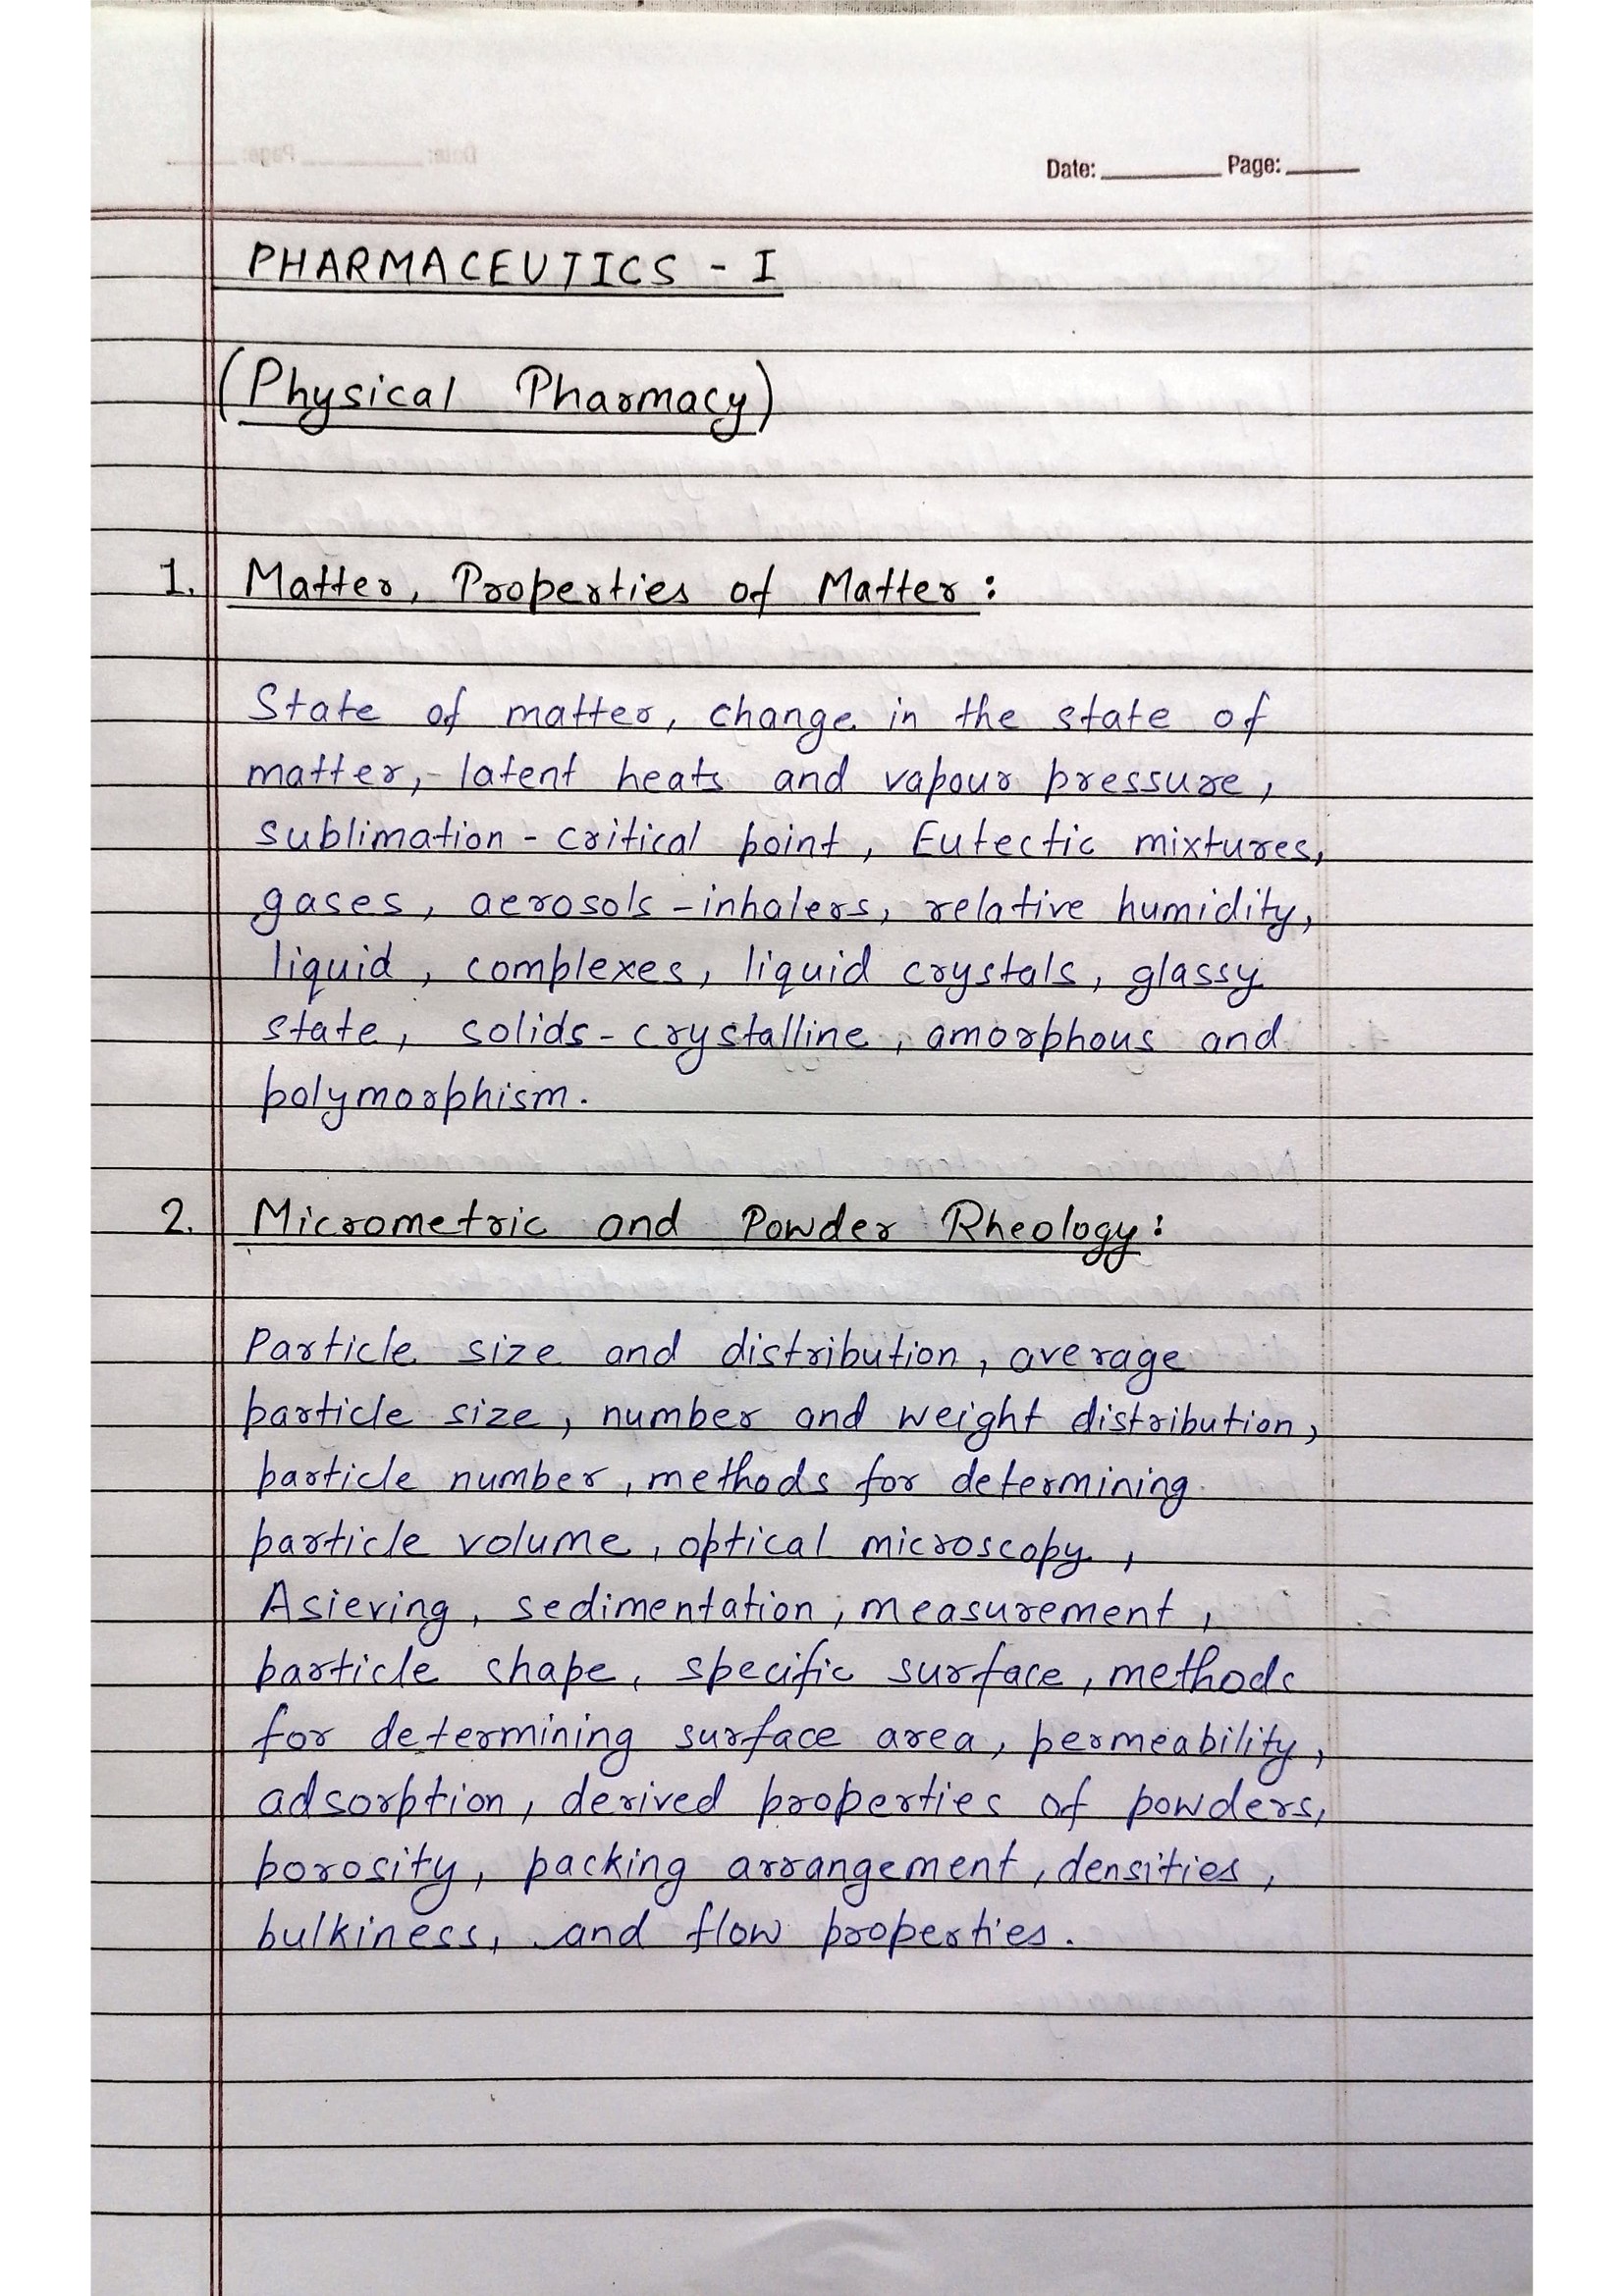 Date: ________ Page: _____
PHARMACEUTICS - I
(Physical Pharmacy)
1. Matter, Properties of Matter :
State of matter, change in the state of
matter, - latent heats and vapour pressure,
sublimation - critical point, Eutectic mixtures,
gases, aerosols - inhalers, relative humidity,
liquid, complexes, liquid crystals, glassy
state, solids - crystalline, amorphous and
polymorphism.
2. Micrometric and Powder Rheology :
Particle size and distribution, average
particle size, number and weight distribution,
particle number, methods for determining
particle volume, optical microscopy,
Asieving, sedimentation, measurement,
particle shape, specific surface, methods
for determining surface area, permeability,
adsorption, derived properties of powders,
porosity, packing arrangement, densities,
bulkiness, and flow properties.